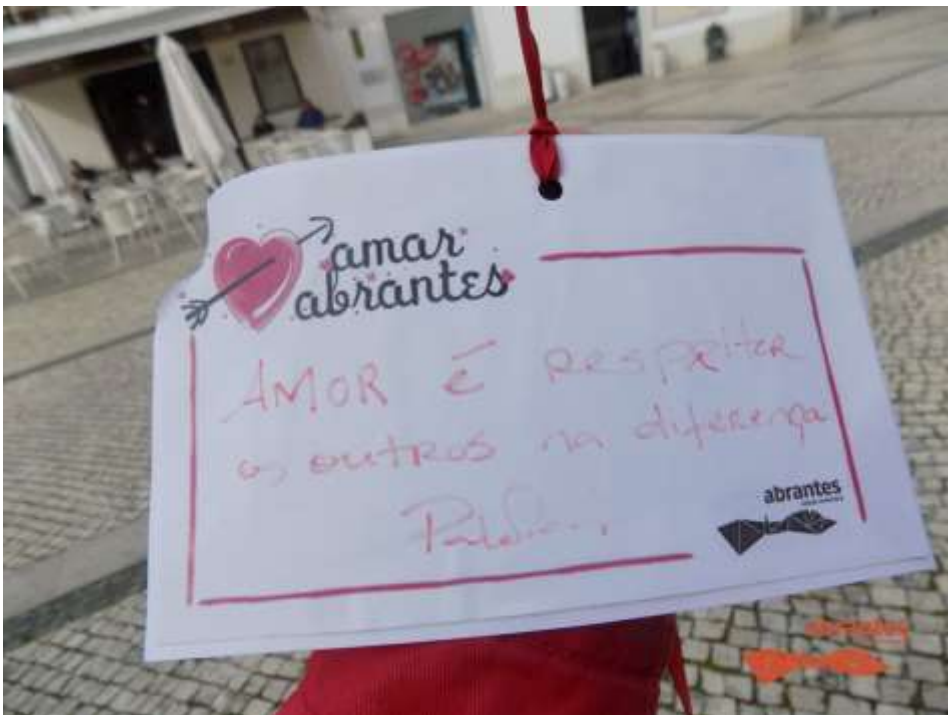 amar
abrantes
AMOR é RESPEITAR
os outros na diferença
abrantes